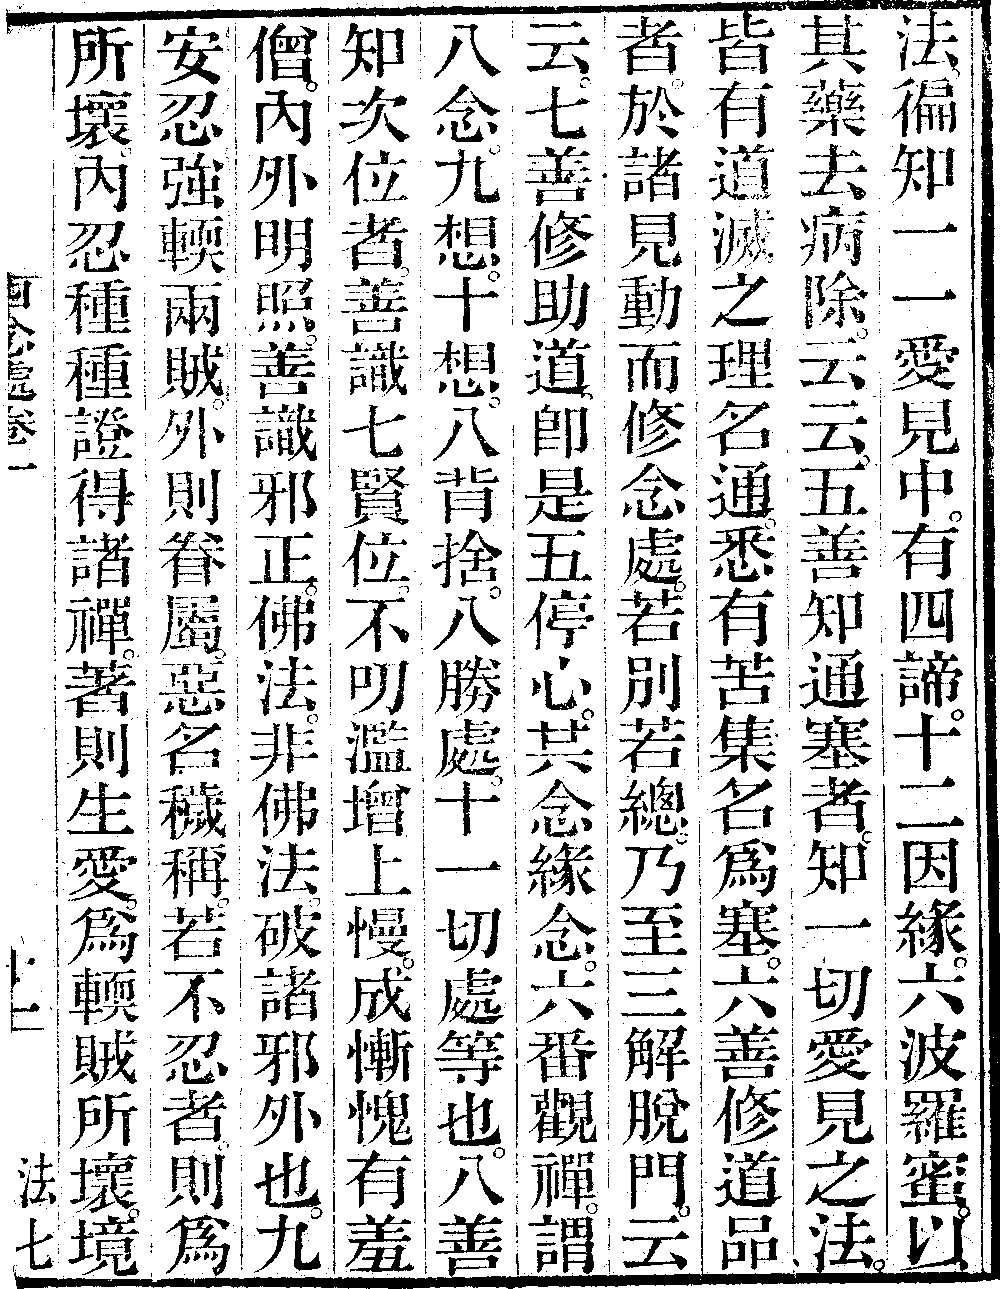 法。徧知一一愛見中。有四諦。十二因緣。六波羅蜜。以
其藥去病除。云云。五善知通塞者。知一切愛見之法。
皆有道滅之理名通。悉有苦集名爲塞。六善修道品
者。於諸見動而修念處。若別若總。乃至三解脫門。云
云。七善修助道。卽是五停心。其念緣念。六番觀禪。謂
八念。九想。十想。八背捨。八勝處。十一切處等也。八善
知次位者。善識七賢位。不叨濫增上慢。成慚愧有羞
僧。內外明照。善識邪正。佛法。非佛法。破諸邪外也。九
安忍強輭兩賊。外則眷屬。惡名穢稱。若不忍者。則爲
所壞。內忍種種證得諸禪。著則生愛。爲輭賊所壞。境
四念處卷一
十一
法七